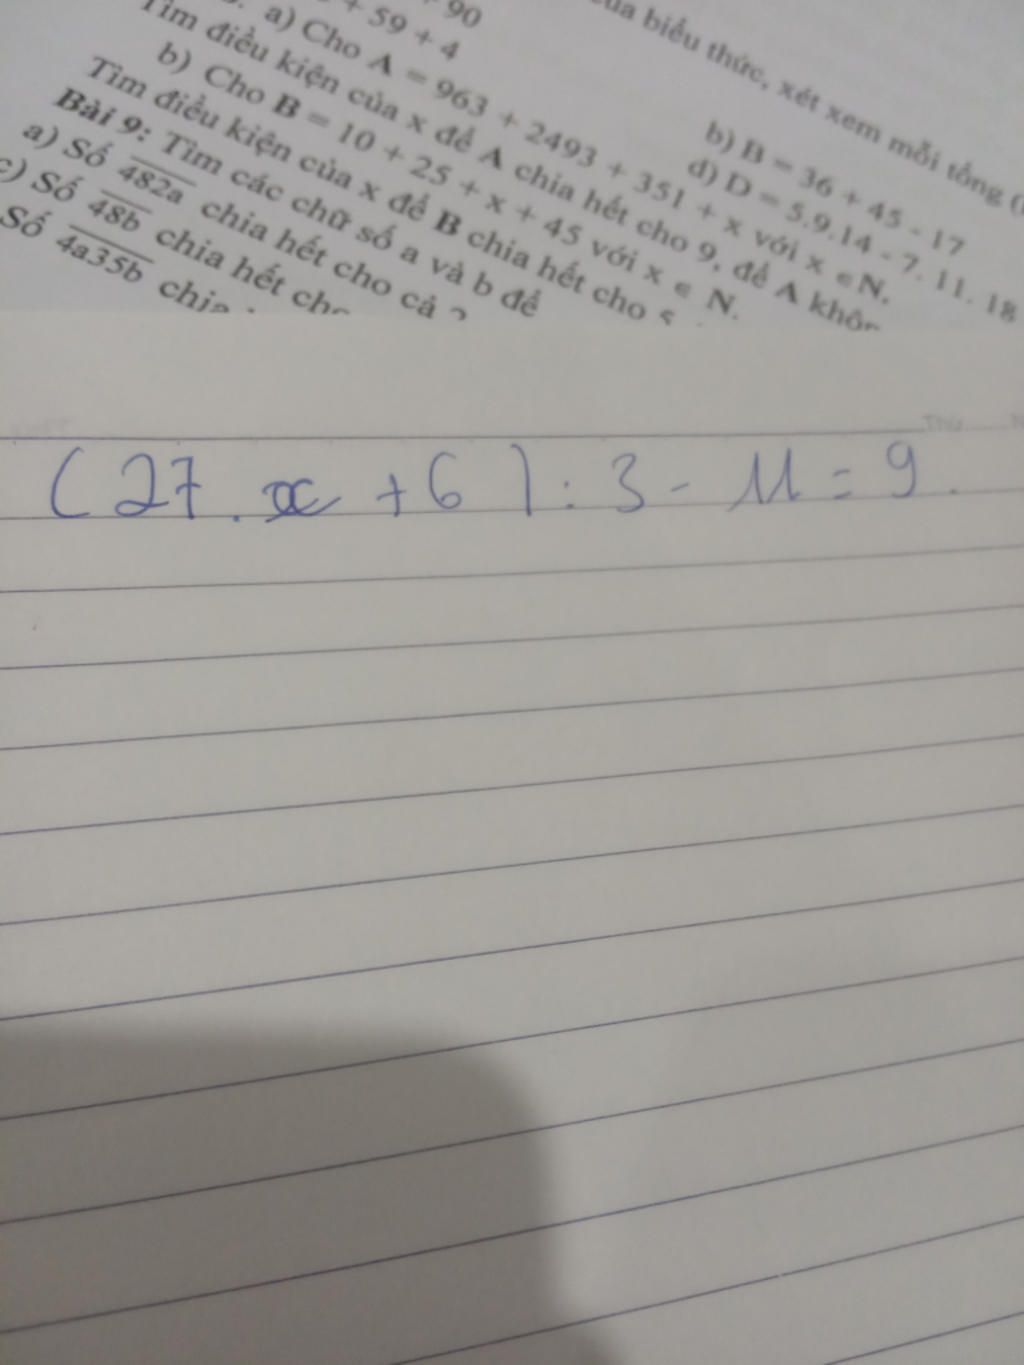 + 90
+ 59 + 4
a) Cho A = 963 + 2493 + 351 + x với x ∈ N.
Tìm điều kiện của x để A chia hết cho 9, để A
b) Cho B = 10 + 25 + x + 45 với x ∈ N.
Tìm điều kiện của x để B chia hết cho 5
Bài 9: Tìm các chữ số a và b để
a) Số 482a chia hết cho cả
c) Số 48b chia hết
Số 4a35b
biểu thức, xét xem mỗi tổng
b) B = 36 + 45 - 17
d) D = 5.9.14 - 7. 11. 18
(27.x + 6) : 3 - 11 = 9.